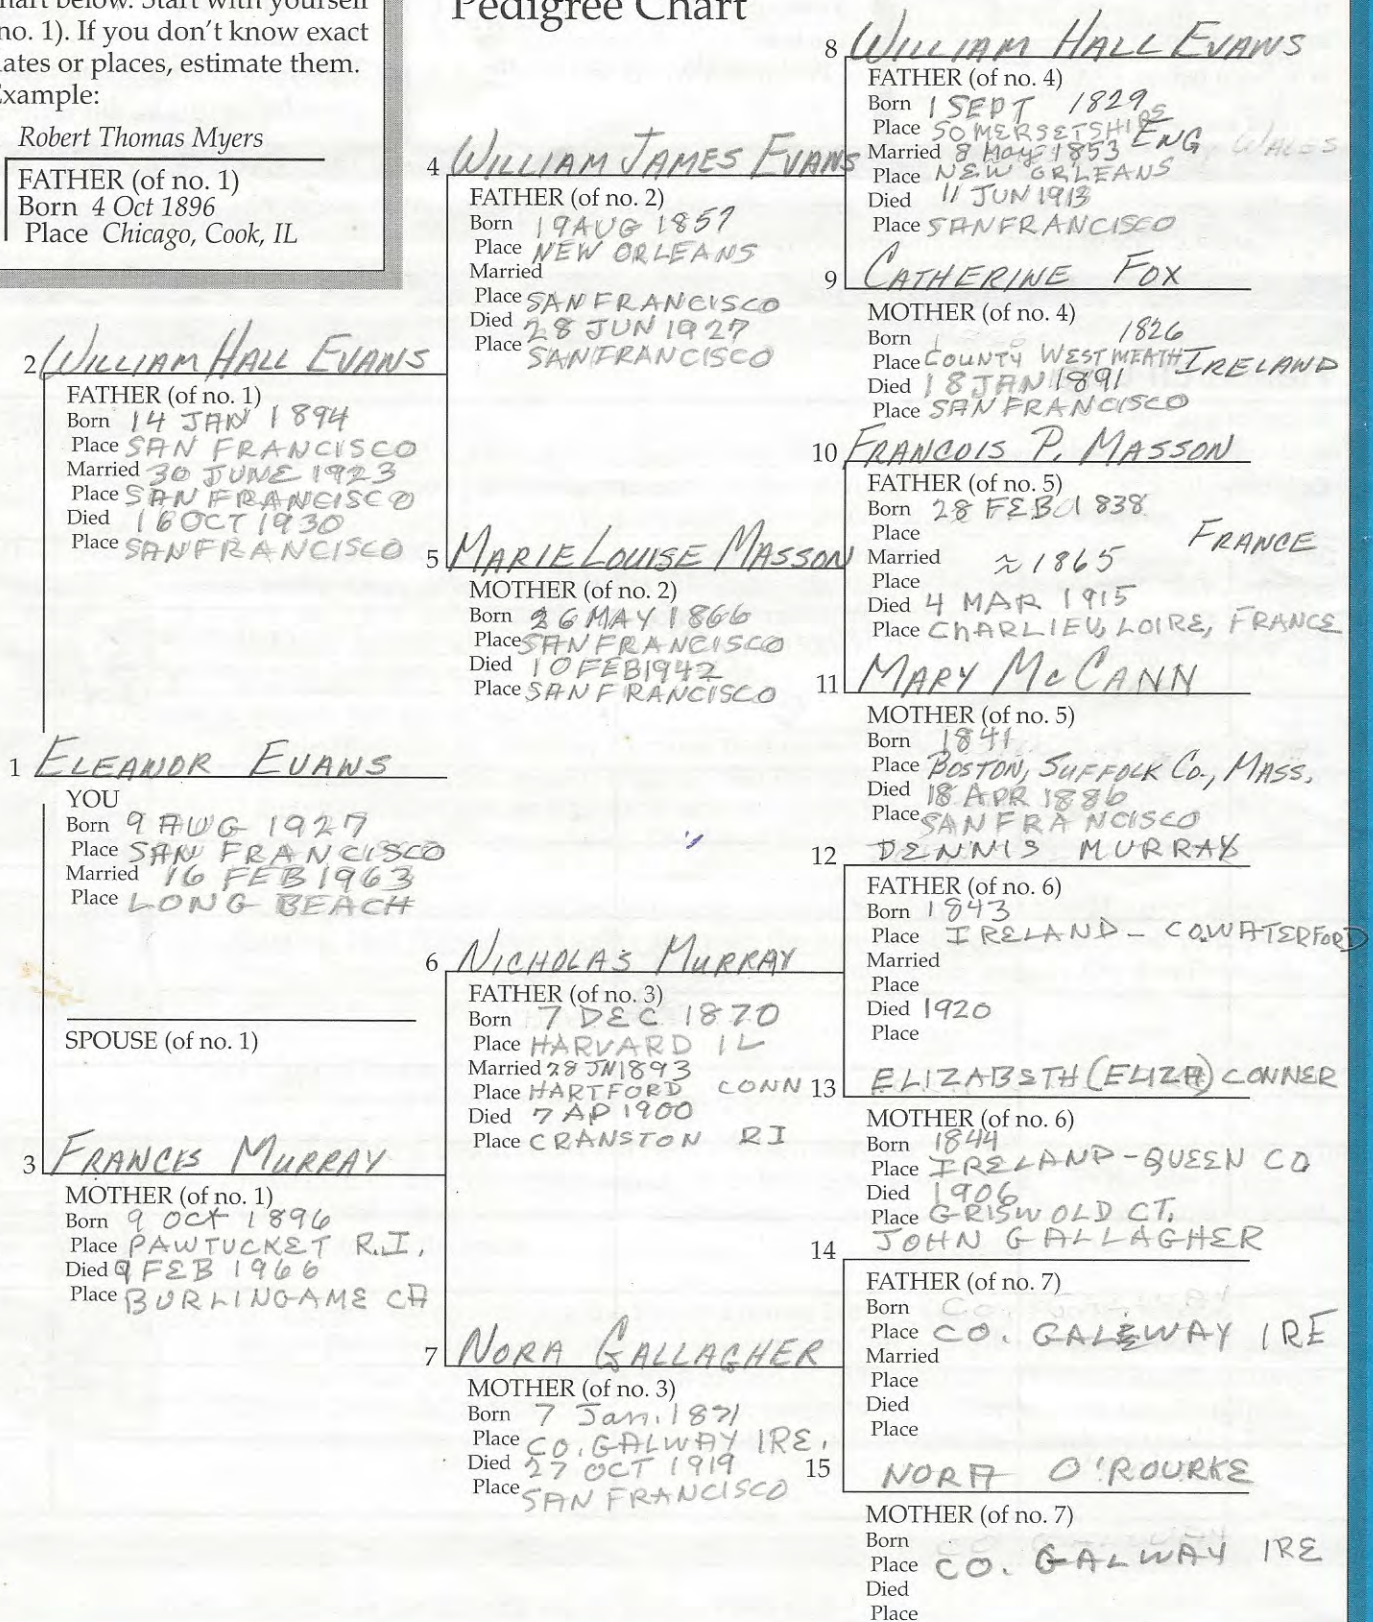 chart below. Start with yourself
(no. 1). If you don't know exact
dates or places, estimate them.
Example:
Robert Thomas Myers
FATHER (of no. 1)
Born 4 Oct 1896
Place Chicago, Cook, IL
Pedigree Chart
2 WILLIAM HALL EVANS
FATHER (of no. 1)
Born 14 JAN 1894
Place SAN FRANCISCO
Married 30 JUNE 1923
Place SAN FRANCISCO
Died 16 OCT 1930
Place SAN FRANCISCO
1 ELEANOR EVANS
YOU
Born 9 AUG 1927
Place SAN FRANCISCO
Married 16 FEB 1963
Place LONG BEACH
SPOUSE (of no. 1)
3 FRANCES MURRAY
MOTHER (of no. 1)
Born 9 OCT 1896
Place PAWTUCKET R.I.
Died 9 FEB 1966
Place BURLINGAME CA
4 WILLIAM JAMES EVANS
FATHER (of no. 2)
Born 19 AUG 1857
Place NEW ORLEANS
Married
Place SAN FRANCISCO
Died 28 JUN 1927
Place SAN FRANCISCO
5 MARIE LOUISE MASSON
MOTHER (of no. 2)
Born 26 MAY 1866
Place SAN FRANCISCO
Died 10 FEB 1942
Place SAN FRANCISCO
6 NICHOLAS MURRAY
FATHER (of no. 3)
Born 7 DEC 1870
Place HARVARD IL
Married 28 JN 1893
Place HARTFORD CONN
Died 7 AP 1900
Place CRANSTON RI
7 NORA GALLAGHER
MOTHER (of no. 3)
Born 7 Jan. 1871
Place CO. GALWAY IRE.
Died 27 OCT 1919
Place SAN FRANCISCO
8 WILLIAM HALL EVANS
FATHER (of no. 4)
Born 1 SEPT 1829
Place SOMERSETSHIRE ENG WALES
Married 8 May 1853
Place NEW ORLEANS
Died 11 JUN 1913
Place SAN FRANCISCO
9 CATHERINE FOX
MOTHER (of no. 4)
Born 1826
Place COUNTY WESTMEATH IRELAND
Died 18 JAN 1891
Place SAN FRANCISCO
10 FRANCOIS P. MASSON
FATHER (of no. 5)
Born 28 FEB 1838
Place FRANCE
Married ≈ 1865
Place
Died 4 MAR 1915
Place CHARLIEU, LOIRE, FRANCE
11 MARY McCANN
MOTHER (of no. 5)
Born 1841
Place BOSTON, SUFFOLK CO., MASS.
Died 18 APR 1886
Place SAN FRANCISCO
12 DENNIS MURRAY
FATHER (of no. 6)
Born 1843
Place IRELAND - CO. WATERFORD
Married
Place
Died 1920
Place
13 ELIZABETH (ELIZA) CONNER
MOTHER (of no. 6)
Born 1844
Place IRELAND - QUEEN CO
Died 1906
Place GRISWOLD CT.
14 JOHN GALLAGHER
FATHER (of no. 7)
Born
Place CO. GALEWAY IRE
Married
Place
Died
Place
15 NORA O'ROURKE
MOTHER (of no. 7)
Born
Place CO. GALWAY IRE
Died
Place